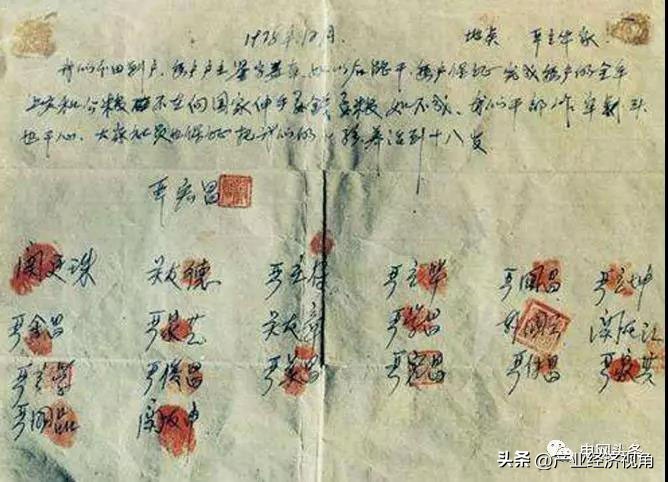 1978年12月 地点 严立华家
我们分田到户，每户户主签字盖章，如以后能干，每户保证完成每户的全年
上交和公粮 不在向国家伸手要钱要粮 如不成，我们干部作牢刹头
也干心，大家社员也保证把我们的小孩养活到十八岁
严宏昌
关廷珠 关友德 严立符 严立华 严国昌 严立坤
严金昌 严家芝 关友章 严学昌 韩国云 关友江
严立学 严俊昌 严美昌 严宏昌 严付昌 严家其
严国品 关友申
电网头条
头条 @产业经济视角